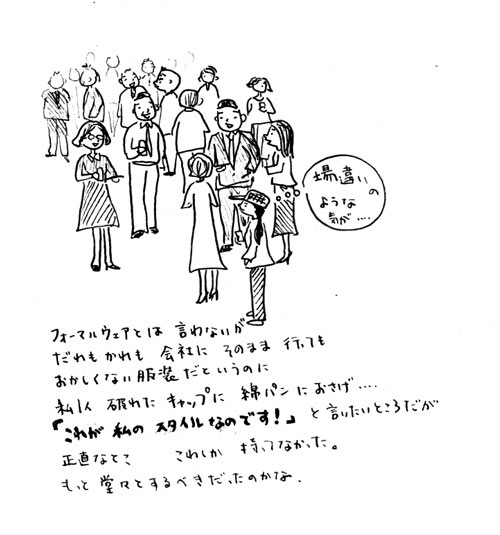 場違い
の
ような
気が‥‥
フォーマルウェアとは 言わないが
だれもかれも 会社に そのまま 行っても
おかしくない服装だというのに
私1人 破れた キャップに 綿パンにおさげ‥‥
「これが 私の スタイルなのです!」 と言いたいところだが
正直なとこ これしか 持ってなかった。
もっと 堂々とするべきだったのかな.